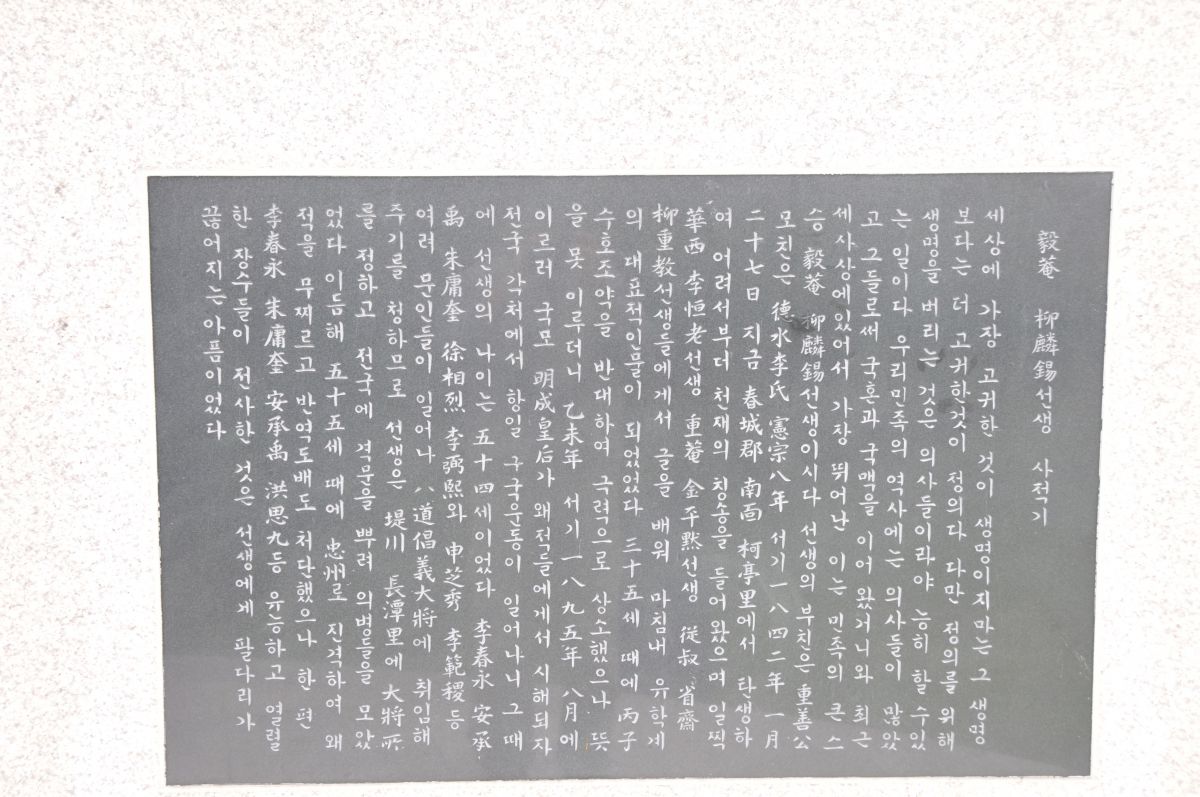 毅菴 柳麟錫선생 사적기
세상에 가장 고귀한 것이 생명이지마는 그 생명
보다는 더 고귀한것이 정의다 다만 정의를 위해
생명을 버리는 것은 의사들이라야 능히 할 수있
는 일이다 우리민족의 역사에는 의사들이 많았
고 그들로써 국혼과 국맥을 이어 왔거니와 최근
세사상에있어서 가장 뛰어난 이는 민족의 큰 스
승 毅菴 柳麟錫선생이시다 선생의 부친은 重善公
모친은 德水李氏 憲宗八年 서기一八四二年 一月
二十七日 지금 春城郡 南面 柯亭里에서 탄생하
여 어려서부터 천재의 칭송을 들어 왔으며 일찍
華西 李恒老선생 重菴 金平默선생 從叔 省齋
柳重教선생들에게서 글을 배워 마침내 유학계
의 대표적인물이 되었었다 三十五세 때에 丙子
수호조약을 반대하여 극력으로 상소했으나 뜻
을 못 이루더니 乙未年 서기一八九五年 八月에
이르러 국모 明成皇后가 왜적들에게서 시해되자
전국 각처에서 항일 구국운동이 일어나니 그 때
에 선생의 나이는 五十四세이었다 李春永 安承
禹 朱庸奎 徐相烈 李弼熙와 申芝秀 李範稷 등
여러 문인들이 일어나 八道倡義大將에 취임해
주기를 청하므로 선생은 堤川 長潭里에 大將所
를 정하고 전국에 격문을 뿌려 의병들을 모았
었다 이듬해 五十五세 때에 忠州로 진격하여 왜
적을 무찌르고 반역도배도 처단했으나 한 편
李春永 朱庸奎 安承禹 洪思九등 유능하고 열렬
한 장수들이 전사한 것은 선생에게 팔다리가
끊어지는아픔이었다